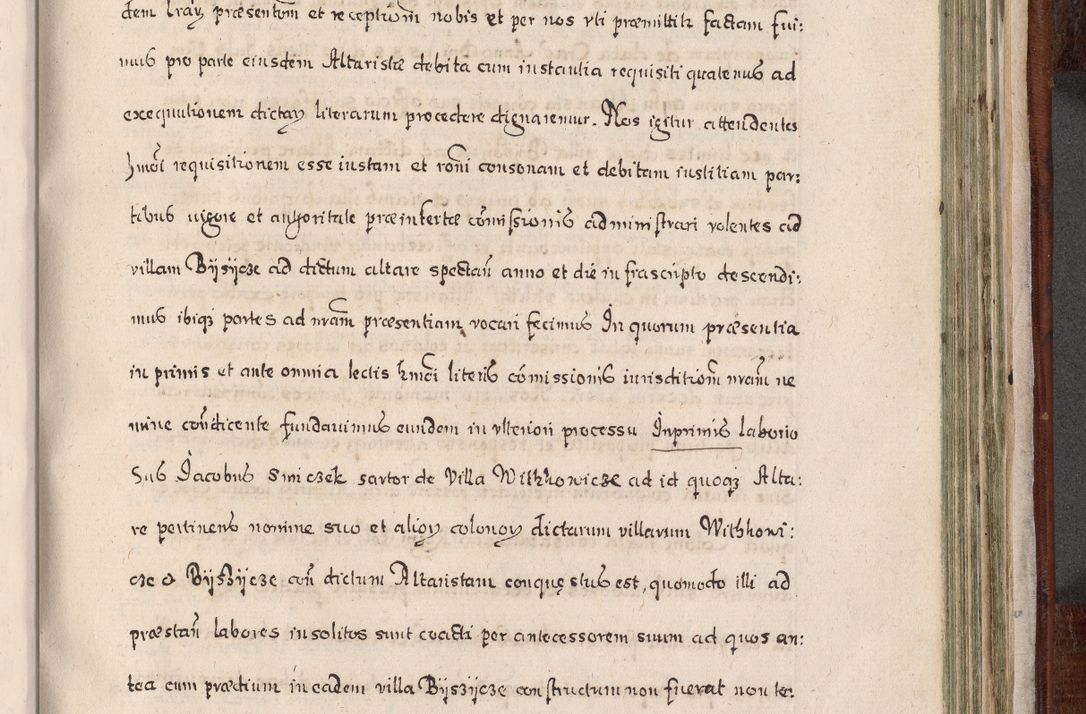 dem lrāꝝ præsentom̄ et receptiom̄ nobis et per nos vti præmittitr factam fui:
mus pro parte eiusdem Altaristæ debita cum instantia requisiti quatenus ad
exequutionem dictaꝝ literarum procedere dignaremur. Nos igitur attendentes
hmōi requisitionem esse iustam et rōni consonam et debitam iustitiam par:
tibus vigore et authoritate præinsertæ cōmissionis administrari volentes ad
villam Bÿsÿcze ad dictum altare spectan̄ anno et die infrascripto descendi:
mus ibiqȝ partes ad nrām præsentiam vocari fecimus In quorum præsentia
in primis et ante omnia lectis hmōi literis cōmissionis iurisditiom̄ nrām ne
mine con̄dicente fundavimus eundem in vlteriori processu Inprimis laborio
sus Jacobus Smiczek sartor de Villa Withkowicze ad id quoqȝ Alta:
re pertinens nomine suo et alioꝝ colonoꝝ dictarum villarum Withkowi:
cze & Bÿsżÿcze con̄ dictum Altaristam conquęstus est, quomodo illi ad
præstan̄ labores insolitos sunt coacti per antecessorem suum ad quos an:
tea cum prædium in eadem villa Bÿszÿcze constructum non fuerat non te: